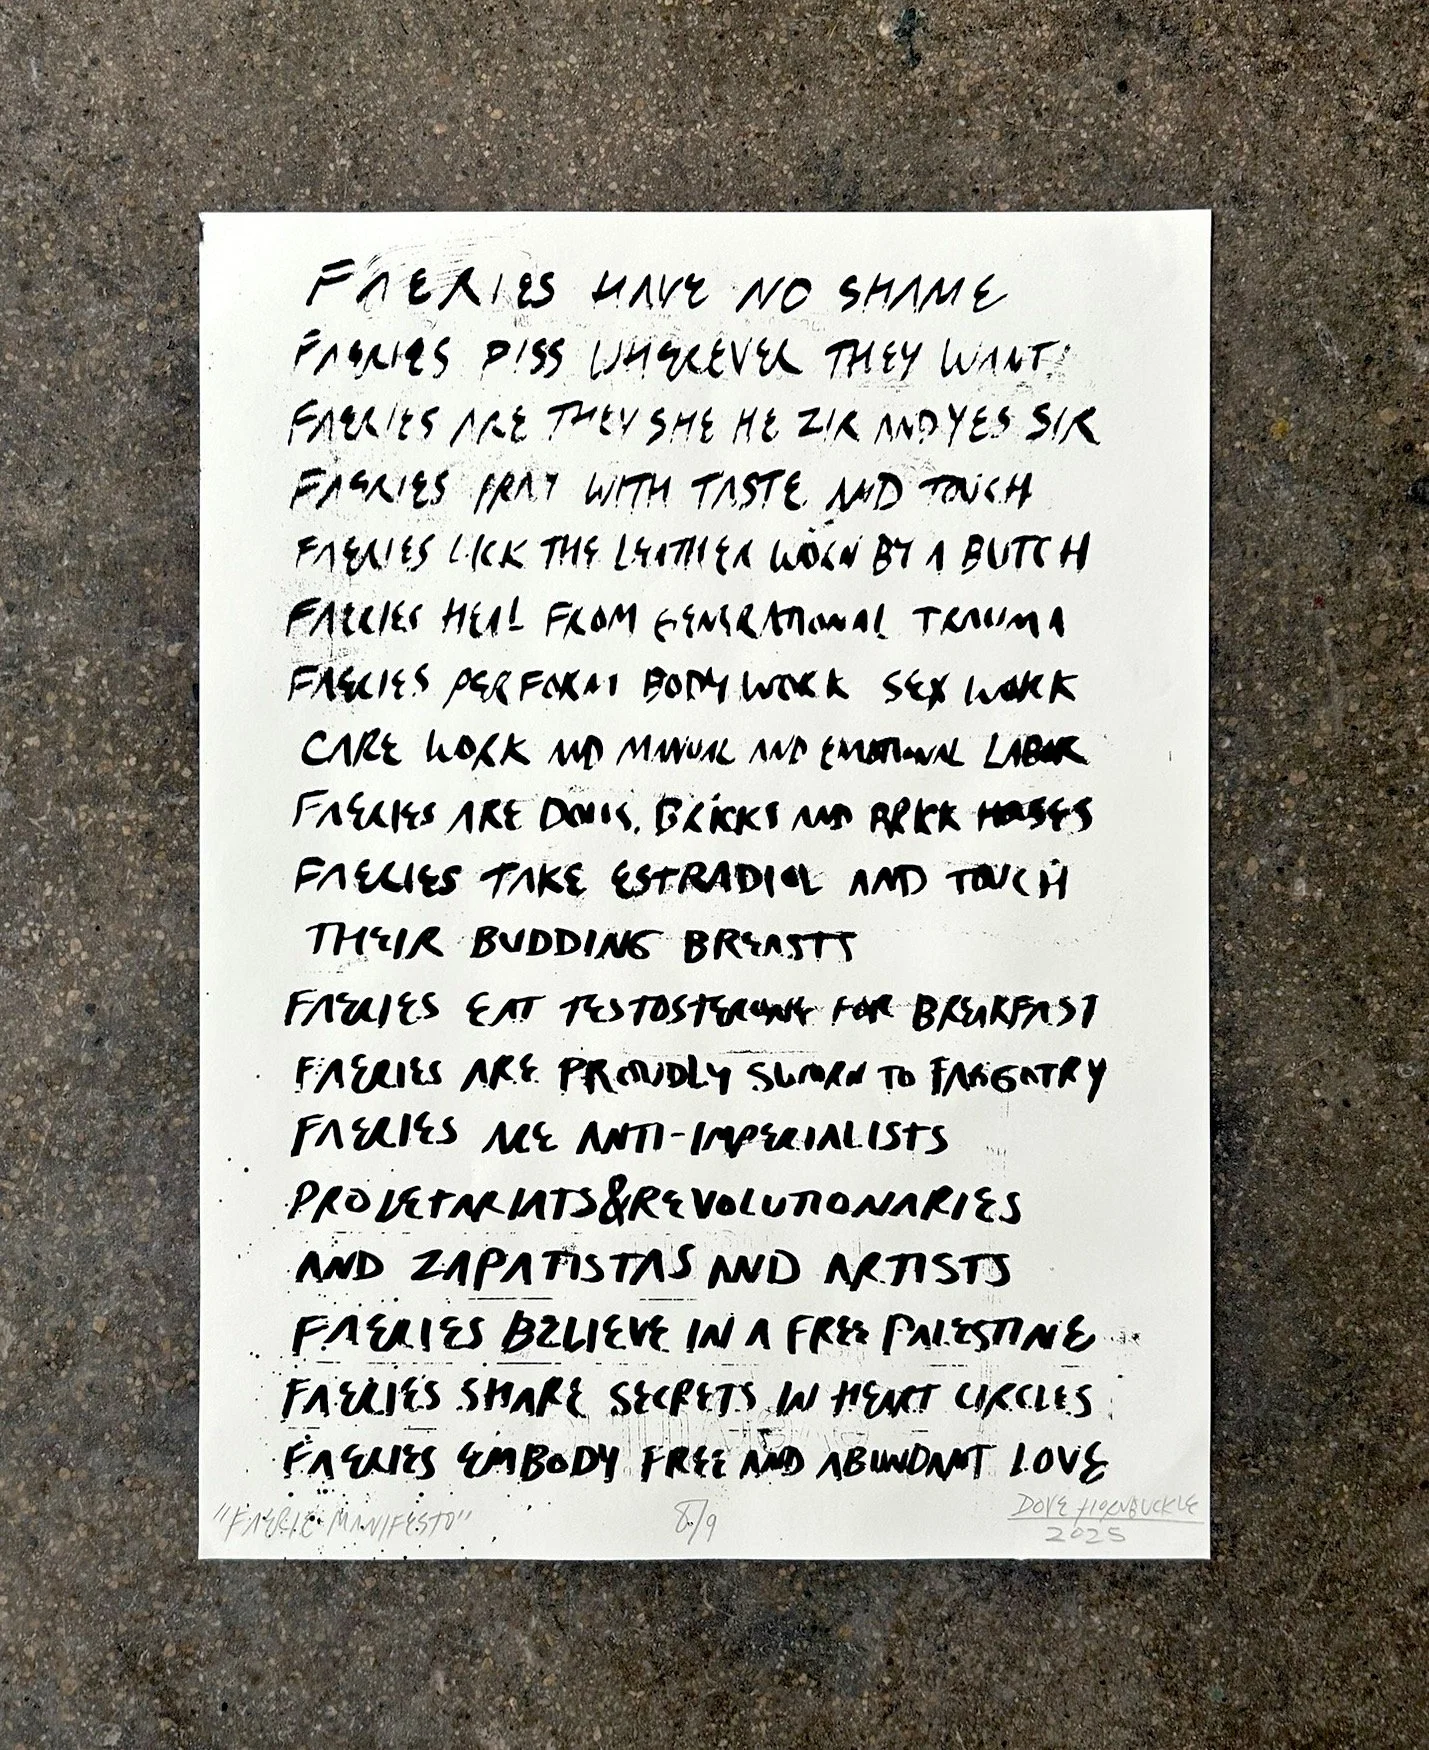 FAERIES HAVE NO SHAME
FAERIES PISS WHEREVER THEY WANT
FAERIES ARE THEY SHE HE ZIR AND YES SIR
FAERIES PRAY WITH TASTE AND TOUCH
FAERIES LICK THE LEATHER WORN BY A BUTCH
FAERIES HEAL FROM GENERATIONAL TRAUMA
FAERIES PERFORM BODY WORK SEX WORK
CARE WORK AND MANUAL AND EMOTIONAL LABOR
FAERIES ARE BRICKS AND BRICK HOUSES
FAERIES TAKE ESTRADIOL AND TOUCH
THEIR BUDDING BREASTS
FAERIES EAT TESTOSTERONE FOR BREAKFAST
FAERIES ARE PROUDLY SWORN TO FAGGOTRY
FAERIES ARE ANTI-IMPERIALISTS
PROLETARIATS & REVOLUTIONARIES
AND ZAPATISTAS AND ARTISTS
FAERIES BELIEVE IN A FREE PALESTINE
FAERIES SHARE SECRETS IN HEART CIRCLES
FAERIES EMBODY FREE AND ABUNDANT LOVE
"FAERIE MANIFESTO" 8/9 DOVE HORNBUCKLE
2025